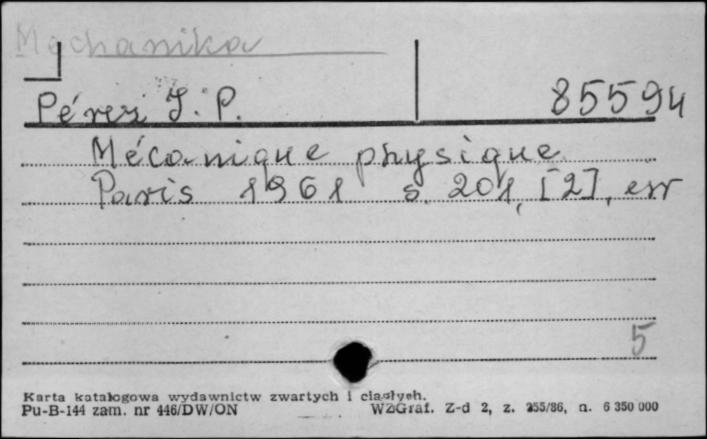 Mechanika
Pérez J. P. 85594
Mécanique physique
Paris 1961 s. 201, [2], err
5
Karta katalogowa wydawnictw zwartych i ciągłych.
Pu-B-144 zam. nr 446/DW/ON WZGraf. Z-d 2, z. 255/86, n. 6 350 000